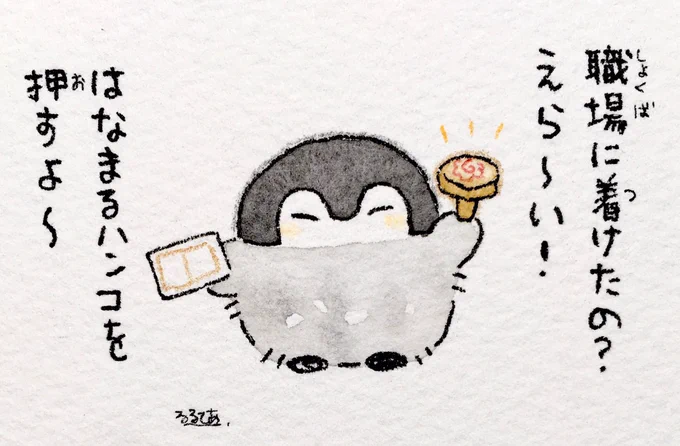 職場に着けたの?
えら〜い!
はなまるハンコを
押すよ〜
るるてあ.